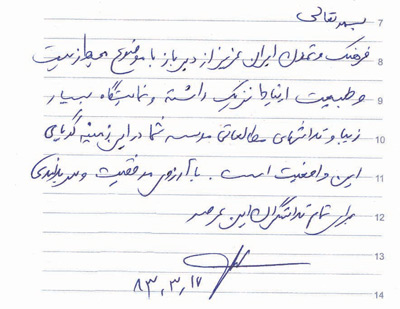 بسمه تعالی 7
فرهنگ و تمدن ایران عزیز از دیرباز با موضوع محیط زیست 8
و طبیعت ارتباط نزدیک داشته و نمایشگاه بسیار 9
زیبا و تلاشهای مطالعاتی موسسه شما در این زمینه گویای 10
این واقعیت است. با آرزوی موفقیت و سربلندی 11
برای تمام تلاشگران این عرصه 12
13
۸۳,۳,۱۷ 14